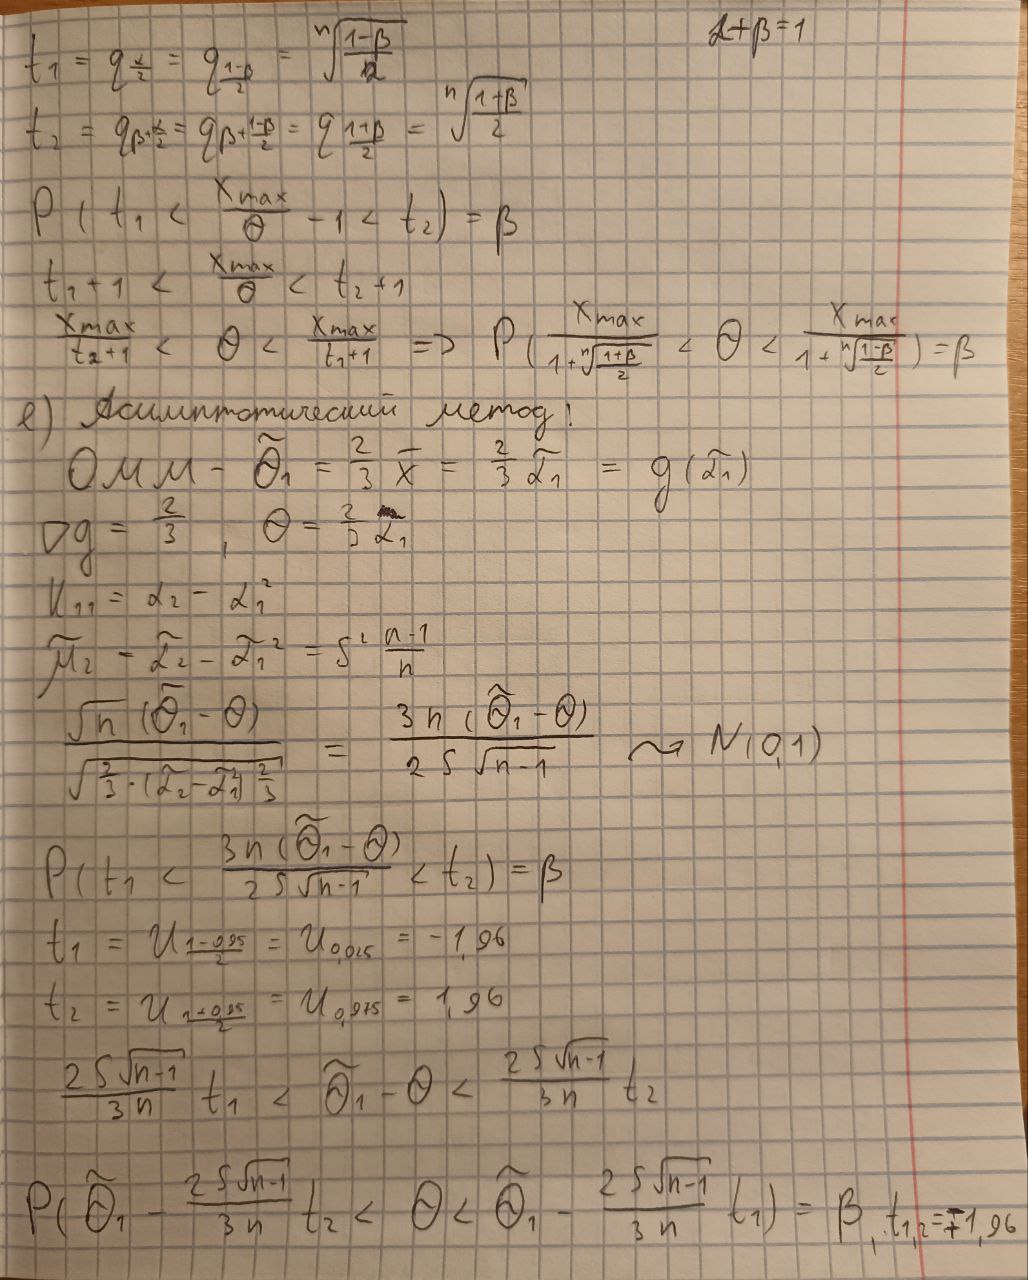 α+β=1
t₁ = q_{α/2} = q_{(1-β)/2} = ⁿ√((1-β)/2)
t₂ = q_{β+α/2} = q_{β+(1-β)/2} = q_{(1+β)/2} = ⁿ√((1+β)/2)
P ( t₁ < Xmax/Θ - 1 < t₂ ) = β
t₁+1 < Xmax/Θ < t₂+1
Xmax/(t₂+1) < Θ < Xmax/(t₁+1) => P( Xmax/(1+ⁿ√((1+β)/2)) < Θ < Xmax/(1+ⁿ√((1-β)/2)) ) = β
e) Асимптотический метод:
ОММ - Θ̃₁ = 2/3 x̄ = 2/3 α̃₁ = g(α̃₁)
∇g = 2/3 , Θ = 2/3 α₁
K₁₁ = α₂ - α₁²
μ̃₂ = α̃₂ - α̃₁² = S² (n-1)/n
√n (Θ̃₁ - Θ) / √(2/3 · (α̃₂ - α̃₁²) 2/3) = 3n (Θ̃₁ - Θ) / (2S√(n-1)) ⇝ N(0,1)
P( t₁ < 3n(Θ̃₁ - Θ) / (2S√(n-1)) < t₂ ) = β
t₁ = U_{(1-0,95)/2} = U_{0,025} = -1,96
t₂ = U_{(1+0,95)/2} = U_{0,975} = 1,96
2S√(n-1)/(3n) t₁ < Θ̃₁ - Θ < 2S√(n-1)/(3n) t₂
P( Θ̃₁ - 2S√(n-1)/(3n) t₂ < Θ < Θ̃₁ - 2S√(n-1)/(3n) t₁ ) = β, t₁,₂ = ∓1,96